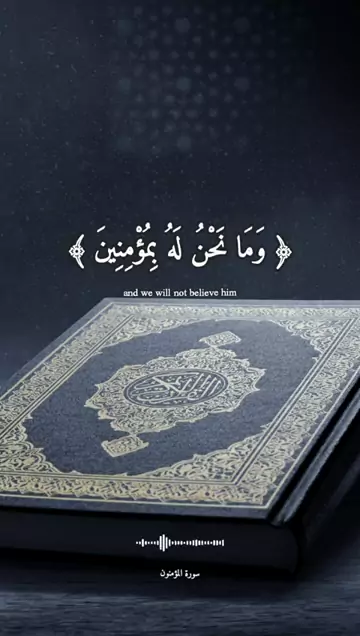 ﴿ وَمَا نَحْنُ لَهُ بِمُؤْمِنِينَ ﴾
and we will not believe him
سورة المؤمنون